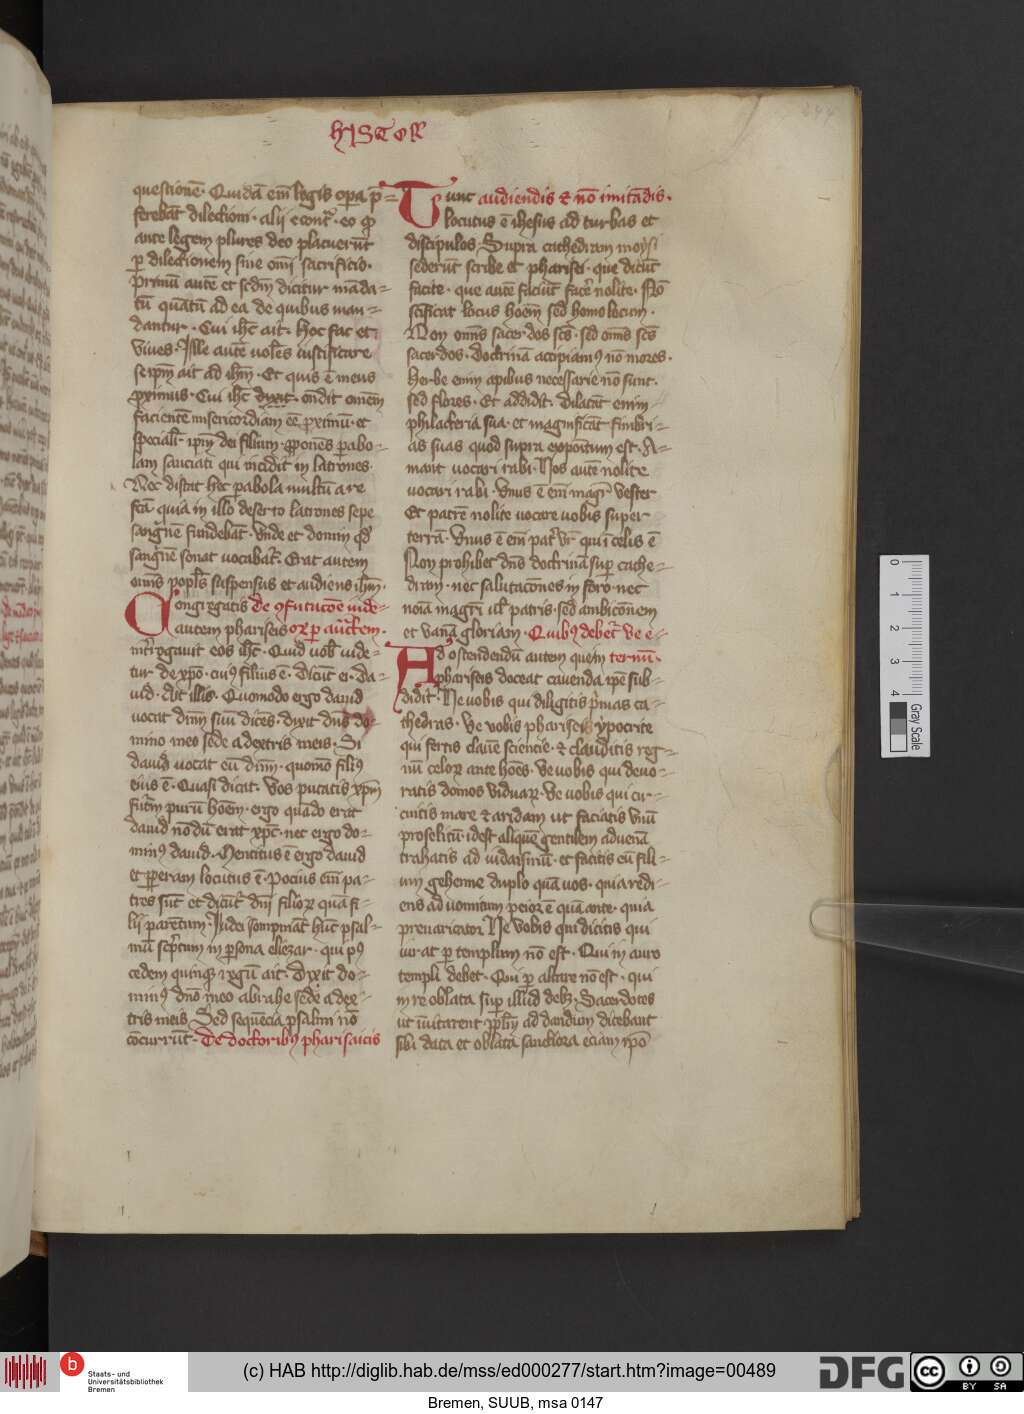 hISTOR
questionē· Quidā em̄ legis opa p̄=
ferebāt dilectioni· alij econt͛· eo ꝙ
ante legem plures deo placuerūt
ꝑ dilectionem sine om̄i sacrificio·
Primū autē et scd̄m dicitur māda-
tū quātū ad ea de quibus man-
dantur· Cui ih̄c ait· Hoc fac et
viues· Ille autē volēs iustificare
seip̄m ait ad ih̄m· Et quis ē meus
ꝓximus· Cui ih̄c dixit· ondit om̄em
facientē misericordiam eē ꝓximū· et
sp̄eciali͛ ip̄m dei filium· ꝓponēs ꝑabo-
lam sauciati qui incidit in latrones·
Nec distat hec ꝑabola multū a re
fc̄a quia in illo deserto latrones sepe
sanguinē fundebāt· Vnde et domin qd̄
sanguinē sonat vocabat͛· Erat autem
om̄is popl̄s suspensus et audiens ih̄m·
Congregatis de ꝯfutacōe iude-
autem phariseis oꝝ ꝑ auct̄em·
int͛rogauit eos ih̄c· Quid vob̄ vide-
tur de xp̄o· cuiꝰ filius ē· Dicūt ei· Da-
uid· Ait illis· Quomodo ergo dauid
vocat dn̄m suū dicēs· dixit dn̄s do-
mino meo sede a dextris meis· Si
dauid vocat eū dn̄m· quomō filiꝰ
eius ē· Quasi dicat· Vos putatis xp̄m
futm̄ purū hoēm· ergo quādo erat
dauid nōdū erat xp̄c· nec ergo do-
minꝰ dauid· Mentitus ē ergo dauid
et ꝑperam locutus ē· Pocius em̄ pa-
tres sūt et dicūt͛ dn̄i filioꝝ quā fi-
lij parētum· Iudei sompniāt hūc psal-
mū sc̄ptum in ꝑsona eliezar· qui pꝰ
cedem quinqꝫ regū ait· Dixit do-
minꝰ dn̄o meo abrahe sede a dex-
tris meis· Sed sequēcia psalmi nō
cōcurrūt· De doctoribꝰ pharisaicis
Tunc audiendis ⁊ nō imitādis·
locutus ē ihesus ad turbas et
discipulos· Supra cathedram moysi
sederūt scribe et pharisei· que dicūt
facite· que autē faciūt fac͛e nolite· Nō
sc̄ificat locus hoēm sed homo locum·
Non om̄s sacerdos sc̄s· sed om̄s sc̄s
sacerdos· doctrinā accipiamꝰ nō mores·
Herbe enim apibus necessarie nō sunt·
sed flores· Et addidit· Dilatāt enim
philacteria sua· et magnificāt fimbri-
as suas quod supra expōitum est· A-
mant vocari rabi· Nos autē nolite
vocari rabi· Vnus ē em̄ magr̄ vester
Et patrē nolite vocare vobis super
terrā· Vnus ē em̄ pat͛ vr̄ qui ī celis ē
Non prohibet dn̄s doctrinā suꝑ cathe-
dram· nec salutacōnes in foro· nec
noīa magr̄i ul̄ patris· sed ambicōnem
et vanā gloriam· Quibꝰ debet͛ ve e-
Ad ostendendū autem quem ternū·
phariseis doceat cauenda ip̄e sub-
didit· Ve vobis qui diligitis p͛mas ca-
thedras· Ve vobis pharisei ypocrite
qui fertis clauē sciencie· ⁊ clauditis reg-
nū celoꝝ ante hoēs· Ve vobis qui deuo-
ratis domos viduaꝝ· Ve vobis qui cir-
cuitis mare ⁊ aridam ut faciatis vnū
proselitū· idest aliquē gentilem aduenā
trahatis ad iudaismū· et facitis eū fili-
um gehenne duplo quā vos· quia redi-
ens ad vomitum peior ē quā ante· quia
preuaricator· Ve vobis qui dicitis qui
iurat ꝑ templum nō est· Qui in auro
templi debet· Qui ꝑ altare nō est· qui
in re oblata suꝑ illud debꝫ· Sacerdotes
ut inuitarent ppl̄m ad dandum dicebant
sibi data et oblata sanctiora eciam ip̄o
0
1
2
3
4
Gray Scale
b Staats- und
Universitätsbibliothek
Bremen
(c) HAB http://diglib.hab.de/mss/ed000277/start.htm?image=00489
DFG
cc BY SA
Bremen, SUUB, msa 0147